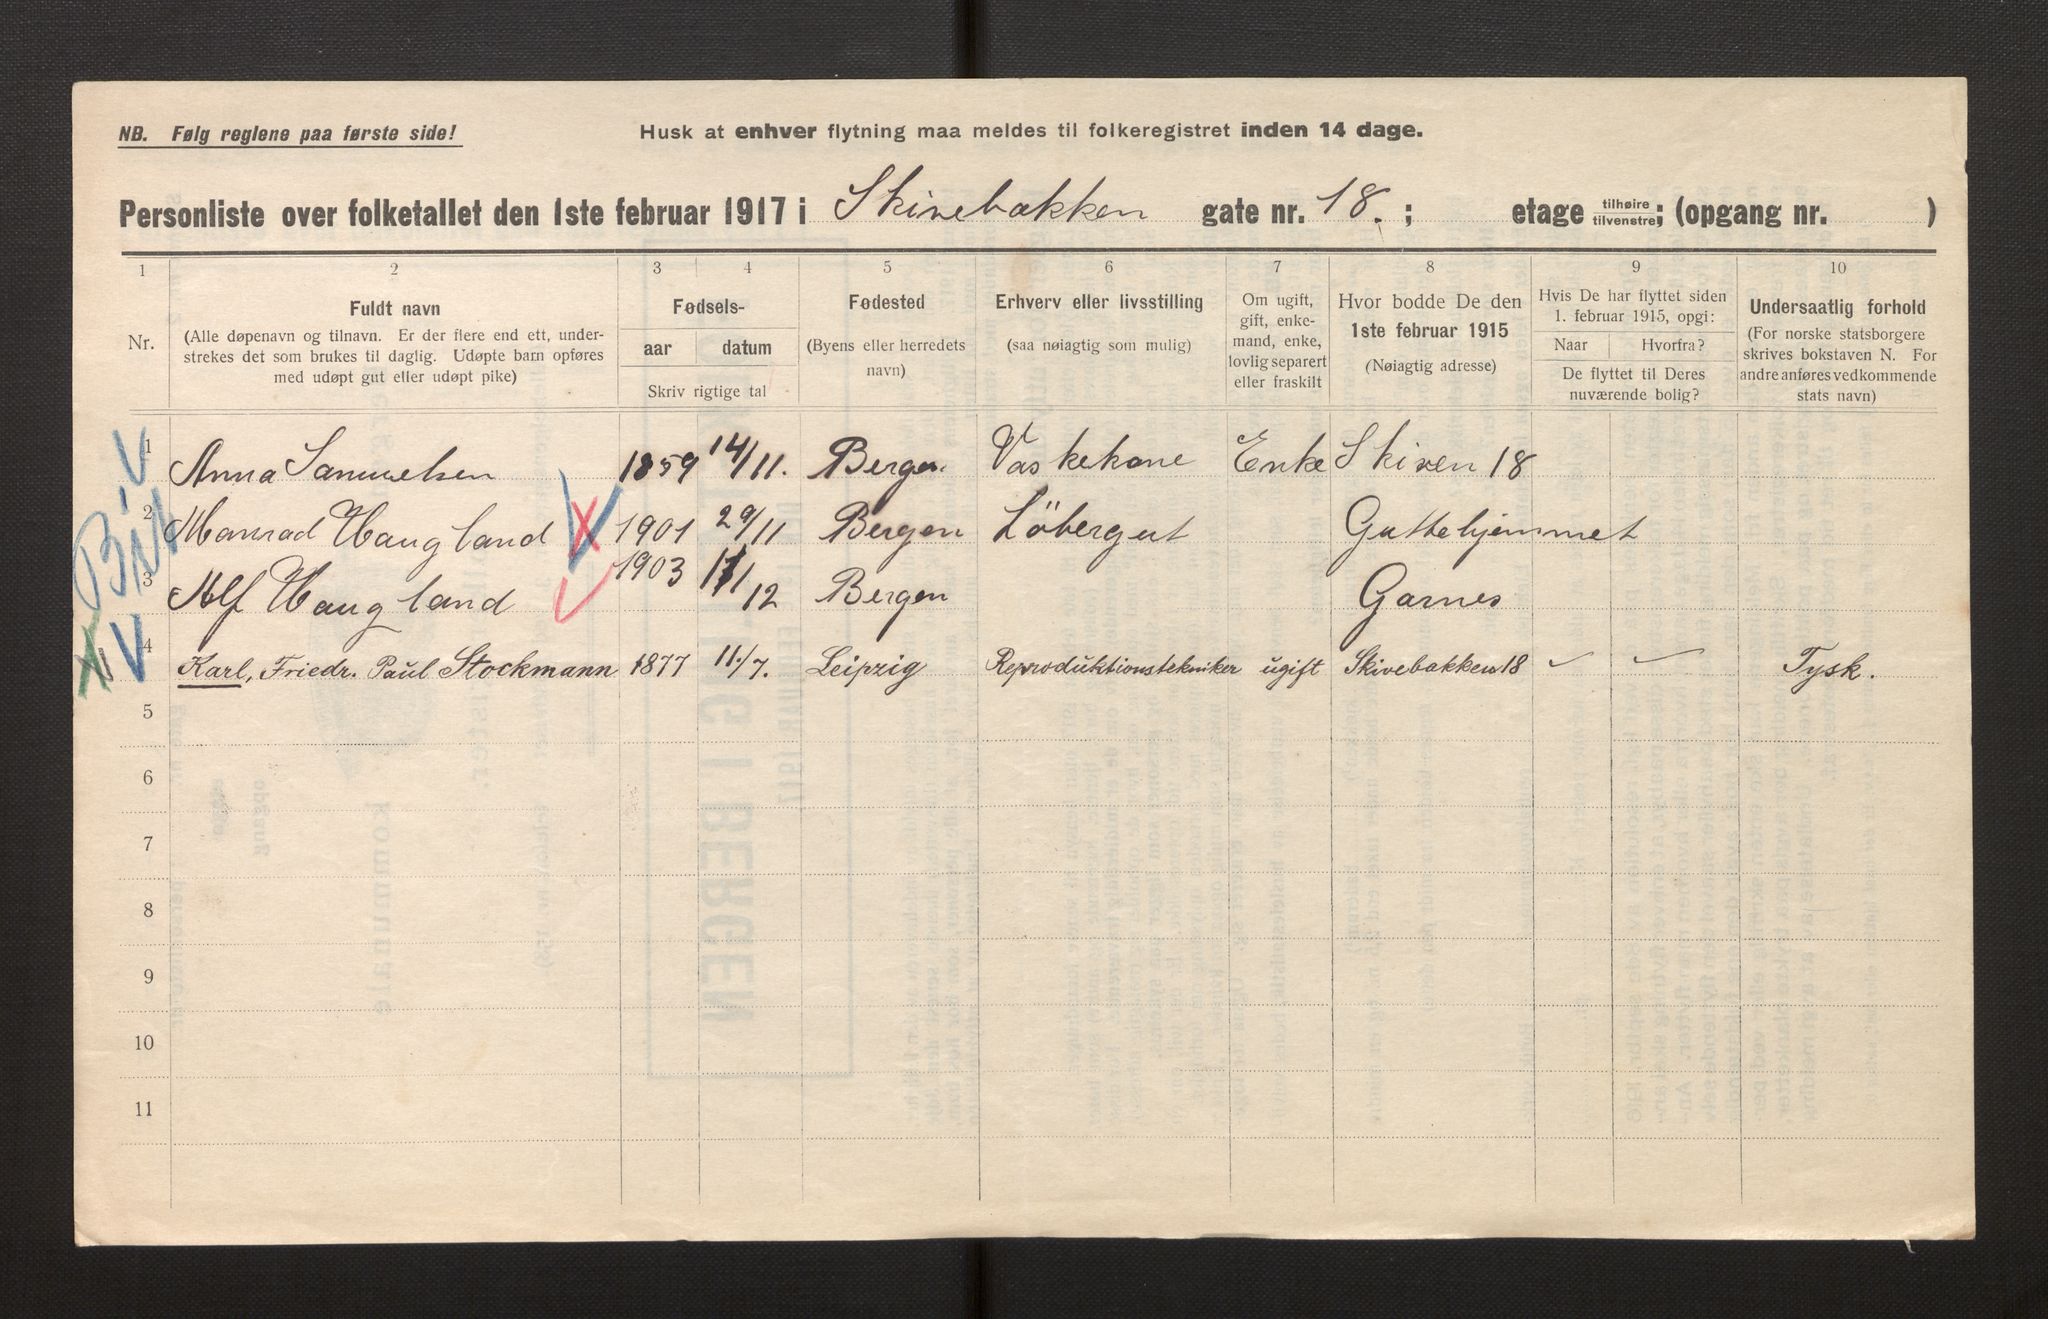 NB. Følg reglene paa første side!
Husk at enhver flytning maa meldes til folkeregistret inden 14 dage.
Personliste over folketallet den 1ste februar 1917 i Skivebakken gate nr. 18. ; etage tilhøire tilvenstre; (opgang nr. )
1 2 3 4 5 6 7 8 9 10
Nr.
Fuldt navn
(Alle døpenavn og tilnavn. Er der flere end ett, under-
strekes det som brukes til daglig. Udøpte barn opføres
med udøpt gut eller udøpt pike)
Fødsels-
aar datum
Skriv rigtige tal
Fødested
(Byens eller herredets
navn)
Erhverv eller livsstilling
(saa nøiagtig som mulig)
Om ugift,
gift, enke-
mand, enke,
lovlig separert
eller fraskilt
Hvor bodde De den
1ste februar 1915
(Nøiagtig adresse)
Hvis De har flyttet siden
1. februar 1915, opgi:
Naar Hvorfra?
De flyttet til Deres
nuværende bolig?
Undersaatlig forhold
(For norske statsborgere
skrives bokstaven N. For
andre anføres vedkommende
stats navn)
1 Anna Samuelsen 1859 14/11. Bergen Vaskekone Enke Skiven 18
2 Monrad Haugland 1901 29/11 Bergen Löbergut Guttehjemmet
3 Alf Haugland 1903 /12 Bergen Garnes
4 Karl, Friedr. Paul Stockmann 1877 11./7. Leipzig Reproduktionstekniker ugift Skivebakken 18 Tysk.
5
6
7
8
9
10
11